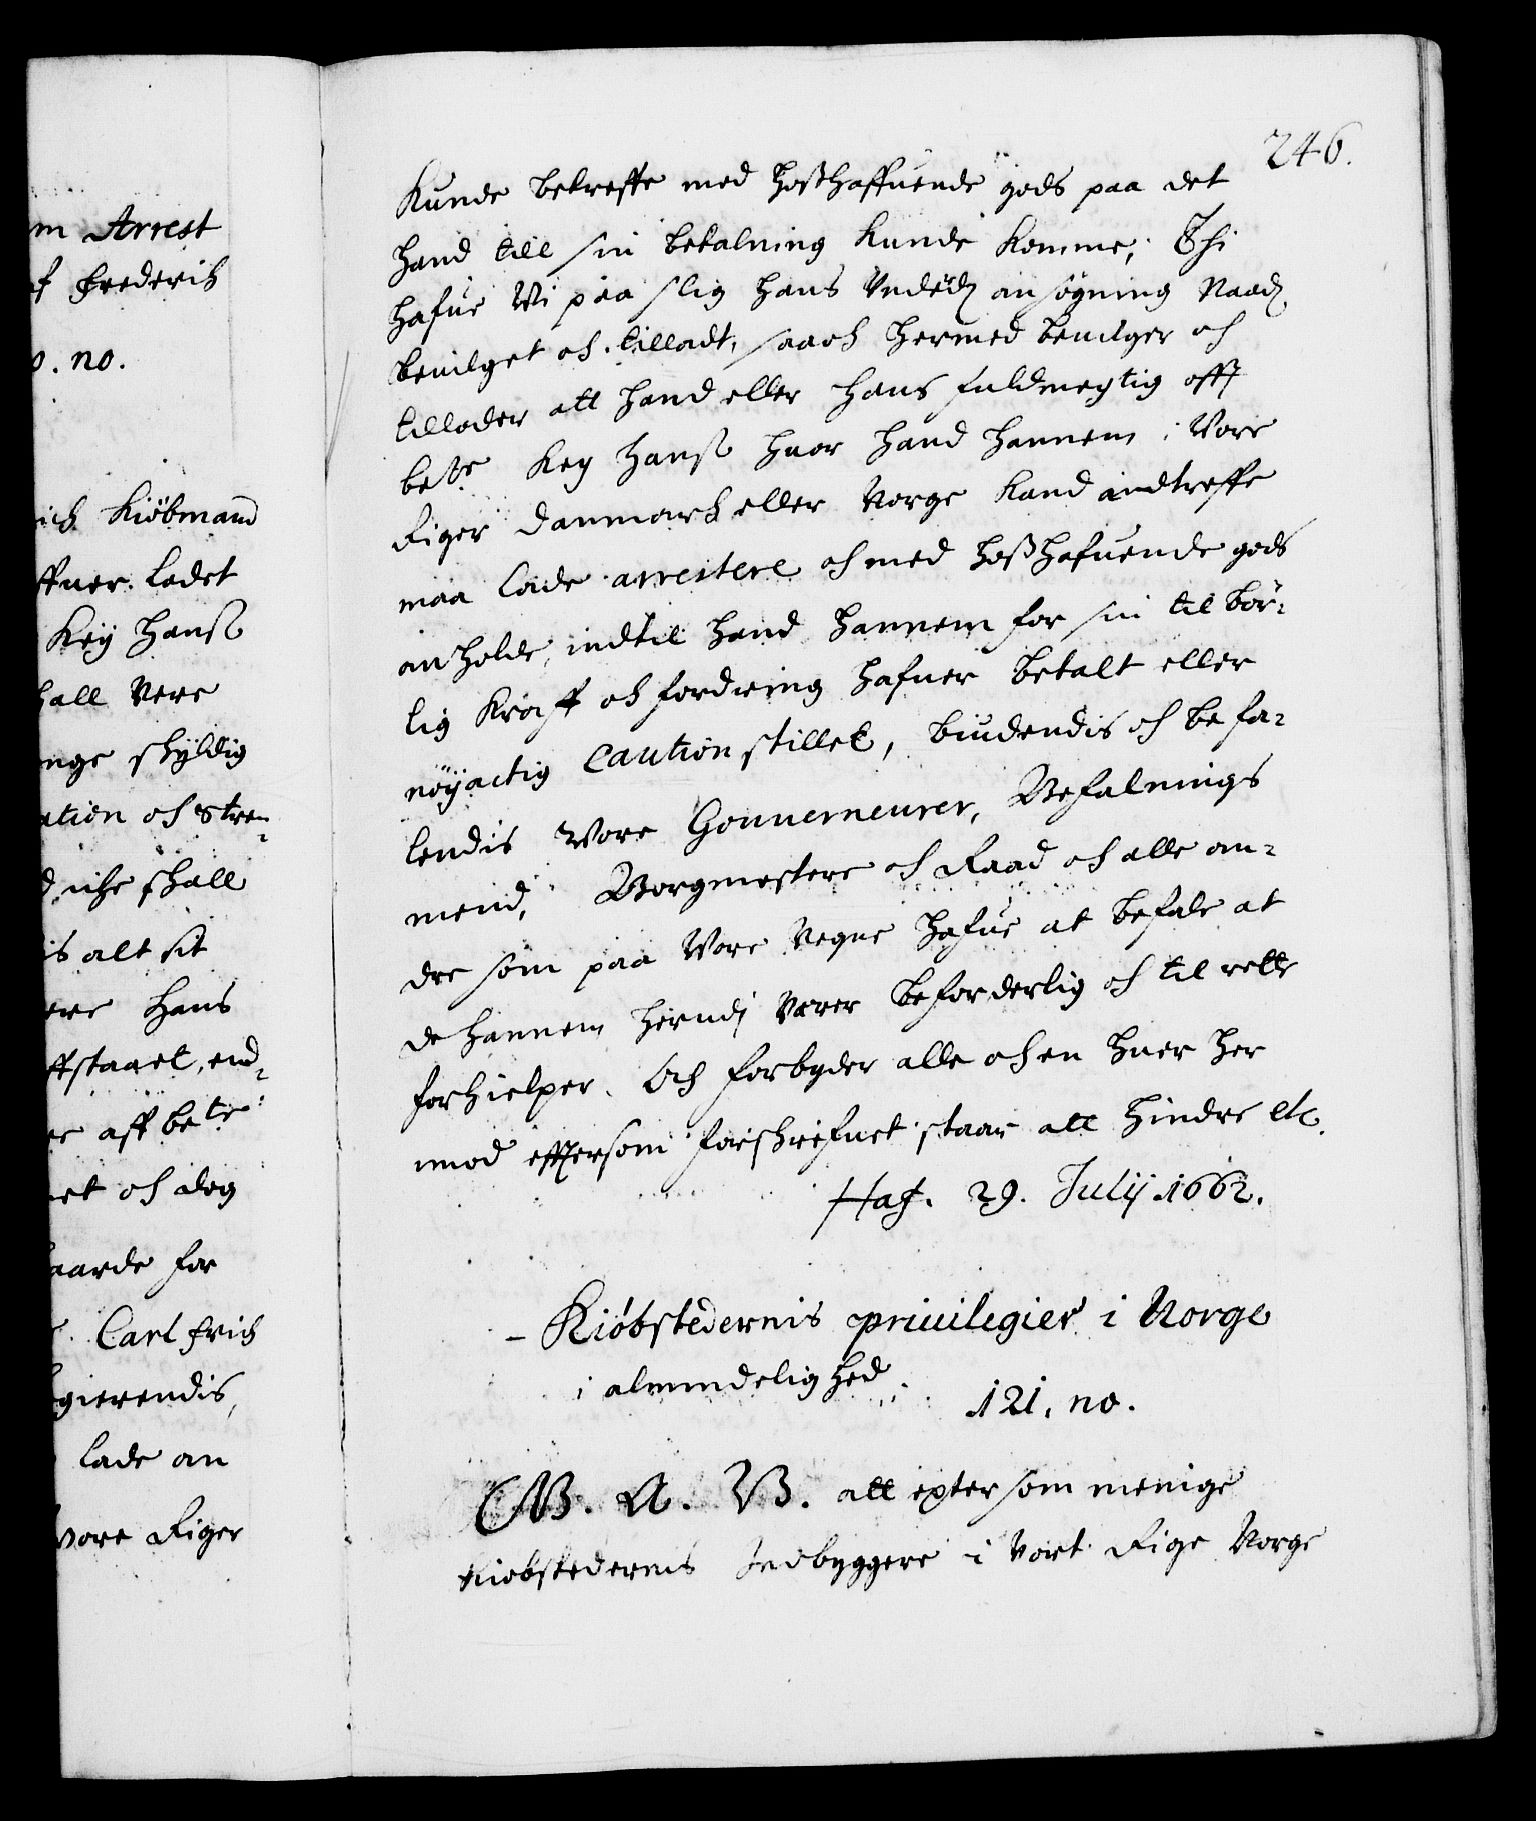 m Arrest
f Frederich
o. no.
ich Kiöbmand
ffuer ladet
Key Hanß
hall Vere
nge skyldig
ation och stren-
d iche skall
is alt sit
ere Hans
ffstaaet, end-
er aff bete
et och dog
aarde for
Carl Erich
gierendis,
lade an
Vore Riger
246.
Kunde betreffe med hoßhaffuende gods paa det
hand till sin betalning kunde komme; Thi
hafue Wi paa slig hans Vnded: ansögning Naad:
beuilget och tilladt, saa och hermed beuilger och
tillader att hand eller hans fuldmegtig offt
bete Key Hanß huor hand hannem i Vore
Riger Danmarch eller Norge kand andtreffe
maa lade arrestere och med hoßhafuende gods
anholde, indtil hand hannem for sin til bör-
lig Kraff och fordring hafuer betalt eller
nöyactig Caution stillet, biudendis och befa-
lendis Wore Gouuerneurer, Befalnings
mend, Borgmestere och Raad och alle an-
dre som paa Wore Vegne hafue at befale at
de hannem herudj Værer beforderlig och til rette
forhielper. Och forbyder alle och en huer her
imod eftersom forschrefuet staar att hindre etc.
Haf. 29. Julij 1662.
- Kiöbstedernis priuilegier i Norge
i almindelighed.
121. no.
G. A. V. att epter som menige
Kiöbstedernis Indbyggere i Vort Rige Norge